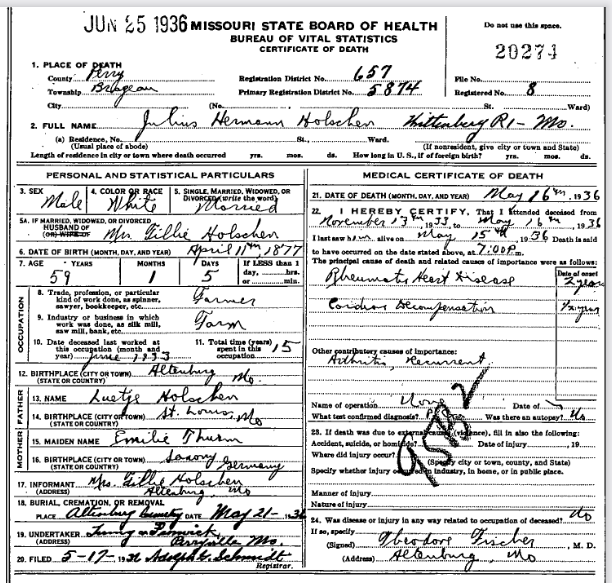 JUN 25 1936 MISSOURI STATE BOARD OF HEALTH
BUREAU OF VITAL STATISTICS
CERTIFICATE OF DEATH
Do not use this space.
20274
1. PLACE OF DEATH
County Perry Registration District No. 657 File No.
Township Brazeau Primary Registration District No. 5874 Registered No. 8
City (No. St. Ward)
2. FULL NAME Julius Hermann Holschen Wittenberg R1- Mo.
(a) Residence, No. St., Ward.
(Usual place of abode) (If nonresident, give city or town and State)
Length of residence in city or town where death occurred yrs. mos. ds. How long in U. S., if of foreign birth? yrs. mos. ds.
PERSONAL AND STATISTICAL PARTICULARS
3. SEX Male
4. COLOR OR RACE White
5. SINGLE, MARRIED, WIDOWED, OR DIVORCED (write the word) Married
5A. IF MARRIED, WIDOWED, OR DIVORCED
HUSBAND OF
(OR) WIFE OF Mrs. Tillie Holschen
6. DATE OF BIRTH (MONTH, DAY, AND YEAR) April 11th 1877
7. AGE YEARS MONTHS DAYS If LESS than 1
59 5 day, hrs.
or min.
OCCUPATION
8. Trade, profession, or particular
kind of work done, as spinner,
sawyer, bookkeeper, etc. Farmer
9. Industry or business in which
work was done, as silk mill,
saw mill, bank, etc. Farm
10. Date deceased last worked at
this occupation (month and
year) June 1933
11. Total time (years)
spent in this
occupation 15
12. BIRTHPLACE (CITY OR TOWN) Altenburg
(STATE OR COUNTRY) Mo
FATHER
13. NAME Luetje Holschen
14. BIRTHPLACE (CITY OR TOWN) St. Louis, Mo
(STATE OR COUNTRY)
MOTHER
15. MAIDEN NAME Emilie Thurm
16. BIRTHPLACE (CITY OR TOWN) Saxony
(STATE OR COUNTRY) Germany
17. INFORMANT Mrs. Tillie Holschen
(ADDRESS) Altenburg, Mo
18. BURIAL, CREMATION, OR REMOVAL
PLACE Altenburg DATE May 21- 1936
19. UNDERTAKER
(ADDRESS) Perryville Mo.
20. FILED 5-17- 1936 Adolph G. Schmidt
Registrar.
MEDICAL CERTIFICATE OF DEATH
21. DATE OF DEATH (MONTH, DAY, AND YEAR) May 16th, 1936
22. I HEREBY CERTIFY, That I attended deceased from
November 13th, 1933, to May 16th, 1936
I last saw him alive on May 15th, 1936 Death is said
to have occurred on the date stated above, at 7:00 P.m.
The principal cause of death and related causes of importance were as follows:
Date of onset
Rheumatic Heart Disease 2 years
Cardiac Decompensation 1/2 year
Other contributory causes of importance:
Arthritis, Recurrent
Name of operation None Date of
What test confirmed diagnosis? Was there an autopsy? No
95B2
23. If death was due to external causes (violence), fill in also the following:
Accident, suicide, or homicide? Date of injury , 19
Where did injury occur?
(Specify city or town, county, and State)
Specify whether injury occurred in industry, in home, or in public place.
Manner of injury
Nature of injury
24. Was disease or injury in any way related to occupation of deceased? No
If so, specify
(Signed) Theodore Fischer, M. D.
(Address) Altenburg, Mo